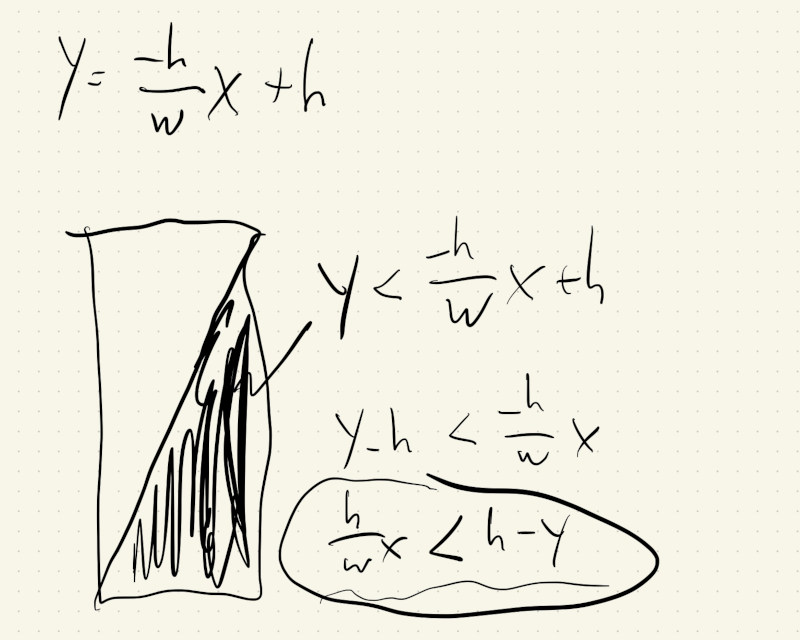 y = -h/w x + h
y < -h/w x + h
y - h < -h/w x
h/w x < h - y